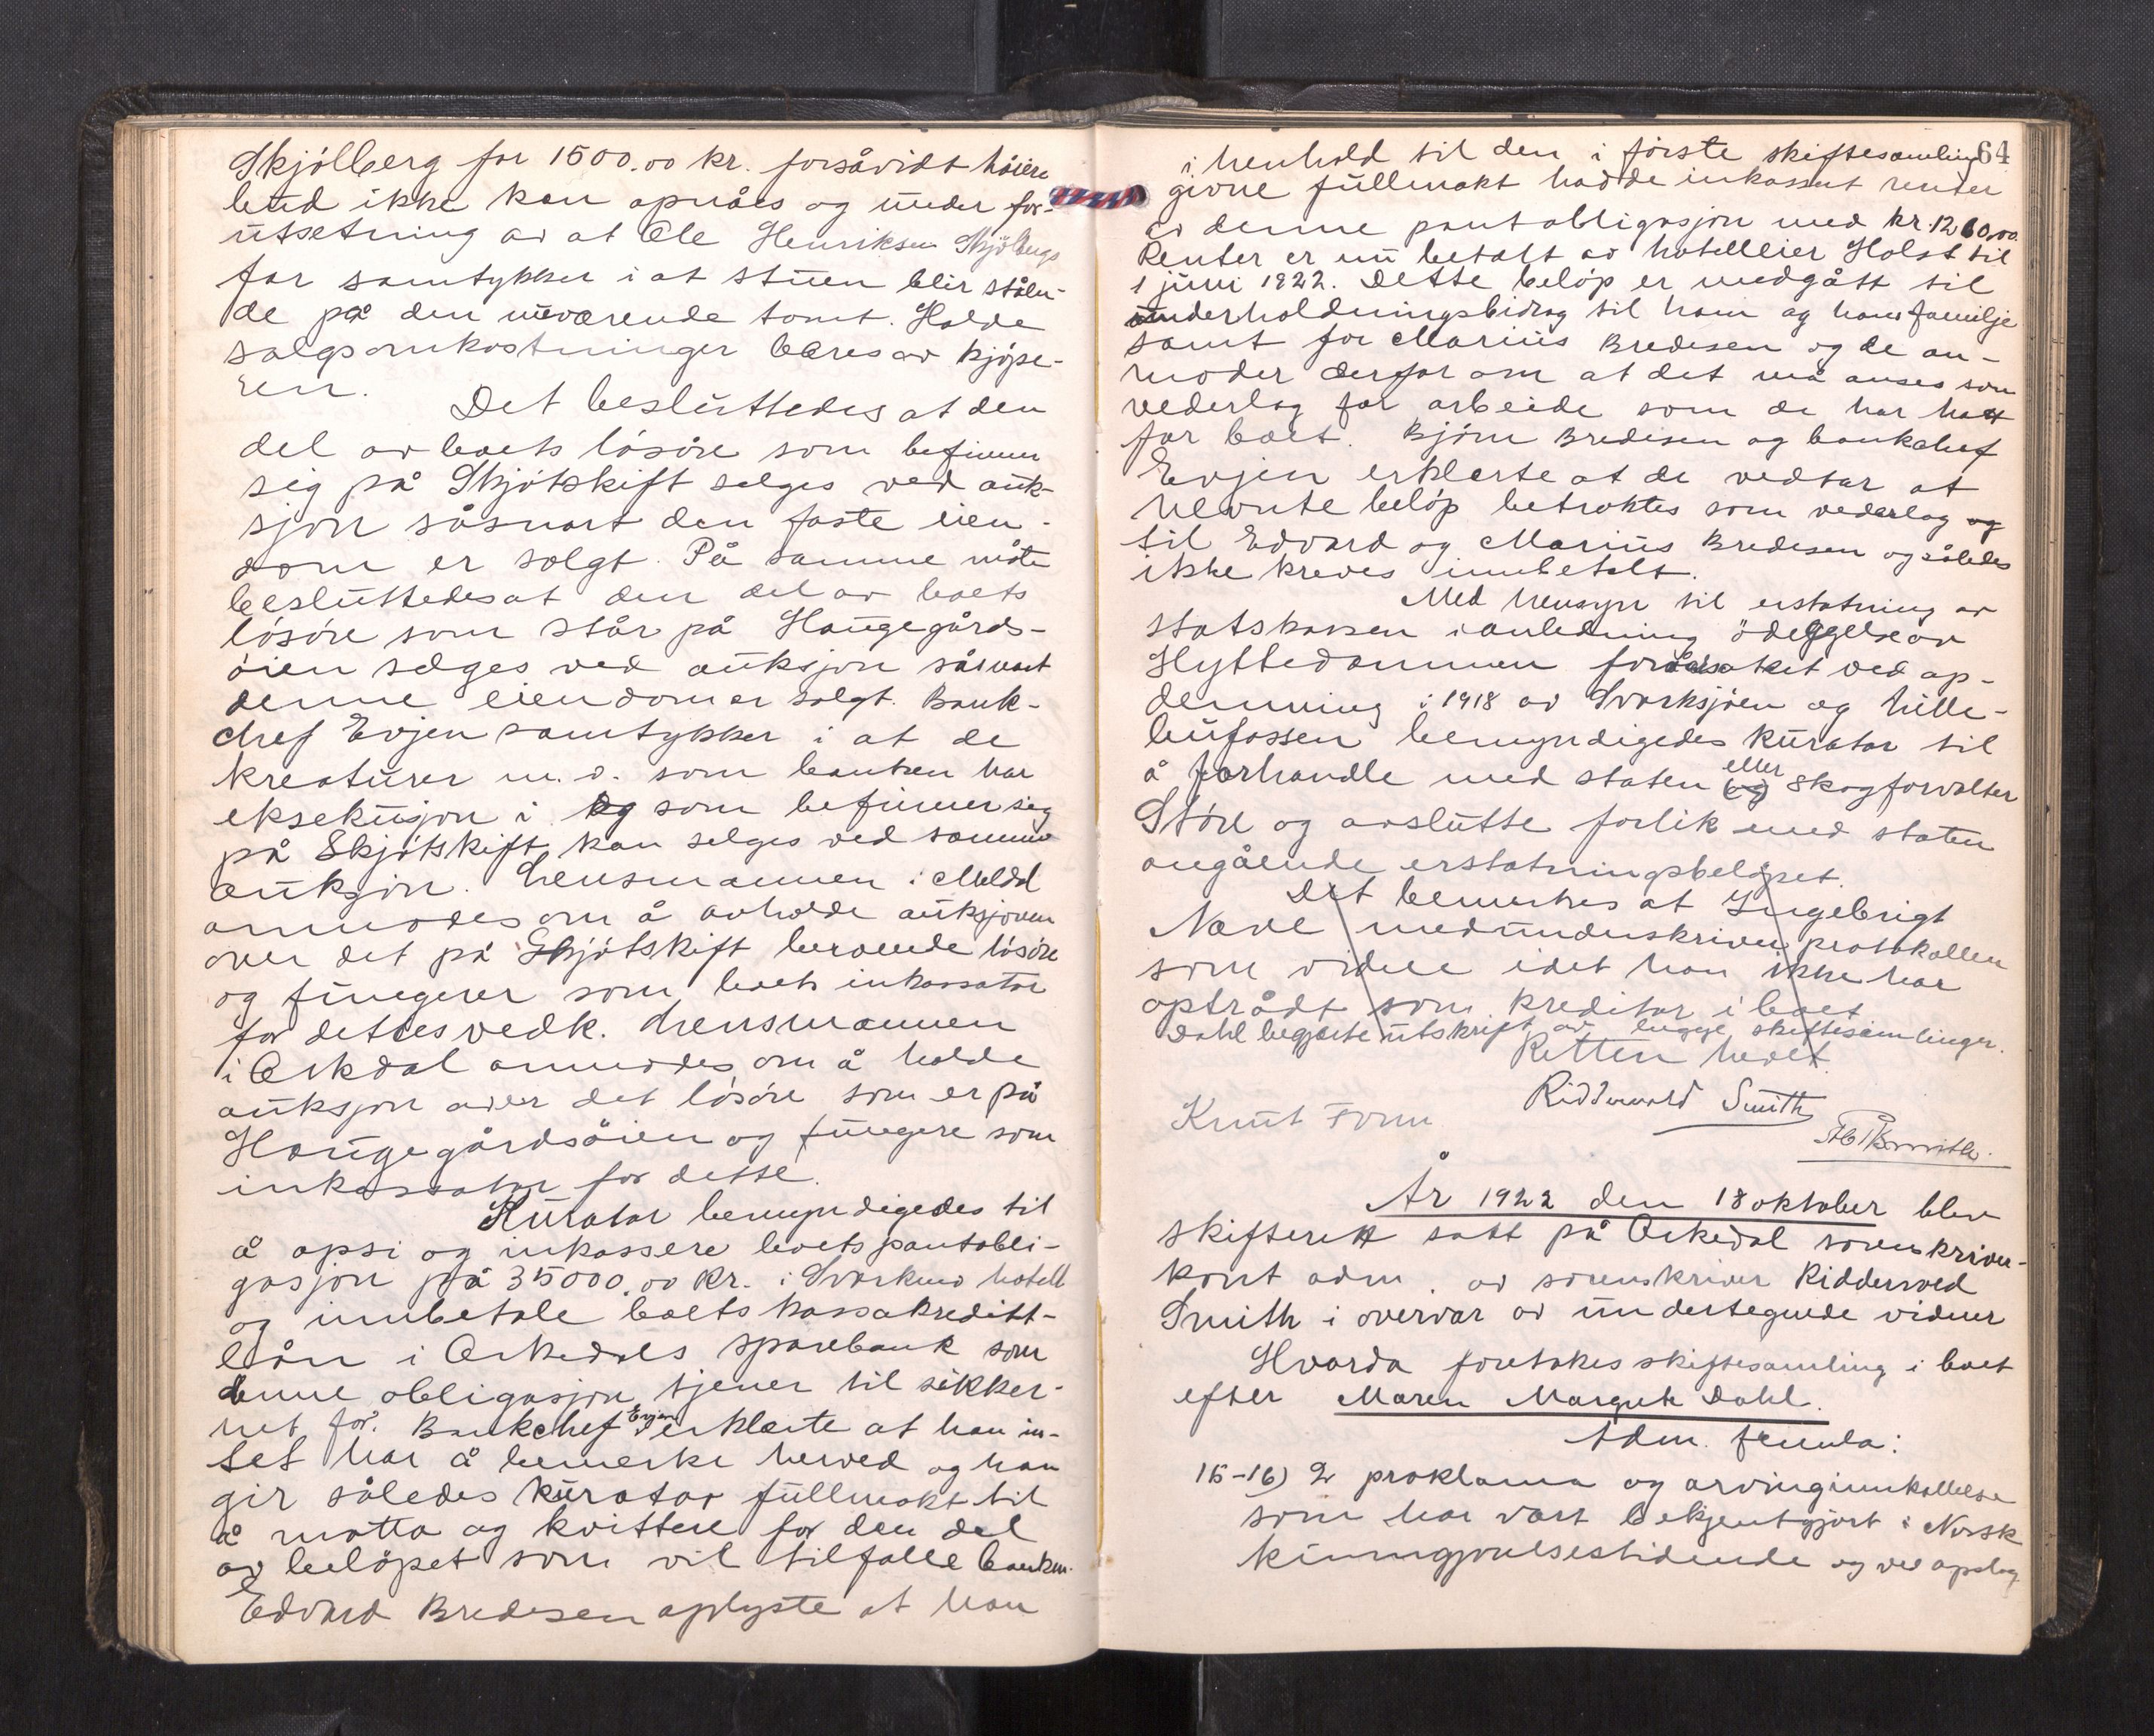 Skjölberg for 1500.00 kr. forsåvidt höiere
bud ikke kan opnåes og under for-
utsetning av at Ole Henriksen Skjölbergs
far samtykker i at stuen blir ståen-
de på den nuværende tomt. Halde
salgsomkostninger bæres av kjöpe-
ren.
Det besluttedes at den
del av boets lösöre som befinner
sig på Skjötskift selges ved auk-
sjon såsnart den faste eien-
dom er solgt. På samme måte
besluttedes at den del av boets
lösöre som står på Haugegårds-
öien selges ved auksjon såsnart
denne eiendom er solgt. Bank-
chef Evjen samtykker i at de
kreaturer m.v. som banken har
eksekusjon i og som befinner sig
på Skjötskift kan selges ved samme
auksjon. Lensmannen i Meldal
anmodes om å avholde auksjonen
over det på Skjötskift beroende lösöre
og fungerer som boets inkassator
for dettes vedk. Lensmannen
i Orkdal anmodes om å holde
auksjon over det lösöre som er på
Haugegårdsöien og fungere som
inkassator for dette.
Kurator bemyndigedes til
å opsi og inkassere boets pantobli-
gasjon på 35000.00 kr. i Svorkmo hotell
og innbetale boets kassakreditt-
lån i Orkedals sparebank som
denne obligasjon tjener til sikker-
het for. Bankchef Evjen erklærte at han in-
tet har å bemerke herved og han
gir således kurator fullmakt til
å motta og kvittere for den del
av belöpet som vil tilfalle banken.
Edvard Bredesen oplyste at han
64
i henhold til den i förste skiftesamling
givne fullmakt hadde inkassert renter
av denne pantobligasjon med kr. 1260,00.
Renter er nu betalt av hotelleier Holst til
1 juni 1922. Dette belöp er medgått til
underholdningsbidrag til ham og hans familje
samt for Marius Bredesen og de an-
moder derfor om at det må anses som
vederlag for arbeide som de har hatt
for boet. Björn Bredesen og bankchef
Evjen erklærte at de vedtar at
nevnte belöp betraktes som vederlag og
til Edvard og Marius Bredesen og således
ikke kreves innbetalt.
Med hensyn til erstatning av
statskassen i anledning ödeggelse av
Hyttedammen forårsaket ved op-
demning i 1918 av Svorksjöen og hille-
bufossen bemyndigedes kurator til
å forhandle med staten og eller skogforvalter
Stören og avslutte forlik med staten
angående erstatningsbelöpet.
Det bemerkes at Ingebrigt
Nave medunderskriver protokollen
som vidne idet han ikke har
optrådt som kreditor i boet
Dahl begjærte utskrift av begge skiftesamlinger.
Retten hevet.
Ridderwold Smith
Knut Fom
År 1922 den 18 oktober blev
skifterett satt på Orkedal sorenskriver-
kont adm. av sorenskriver Ridderwold
Smith i overvær av undertegnede vidner
Hvorda foretokes skiftesamling i boet
efter Maren Margrete Dahl.
Adm. fremla:
15-16) 2 proklama og arvinginnkallelse
som har vært bekjentgjort i Norsk
kunngjörelsestidende og ved opslag